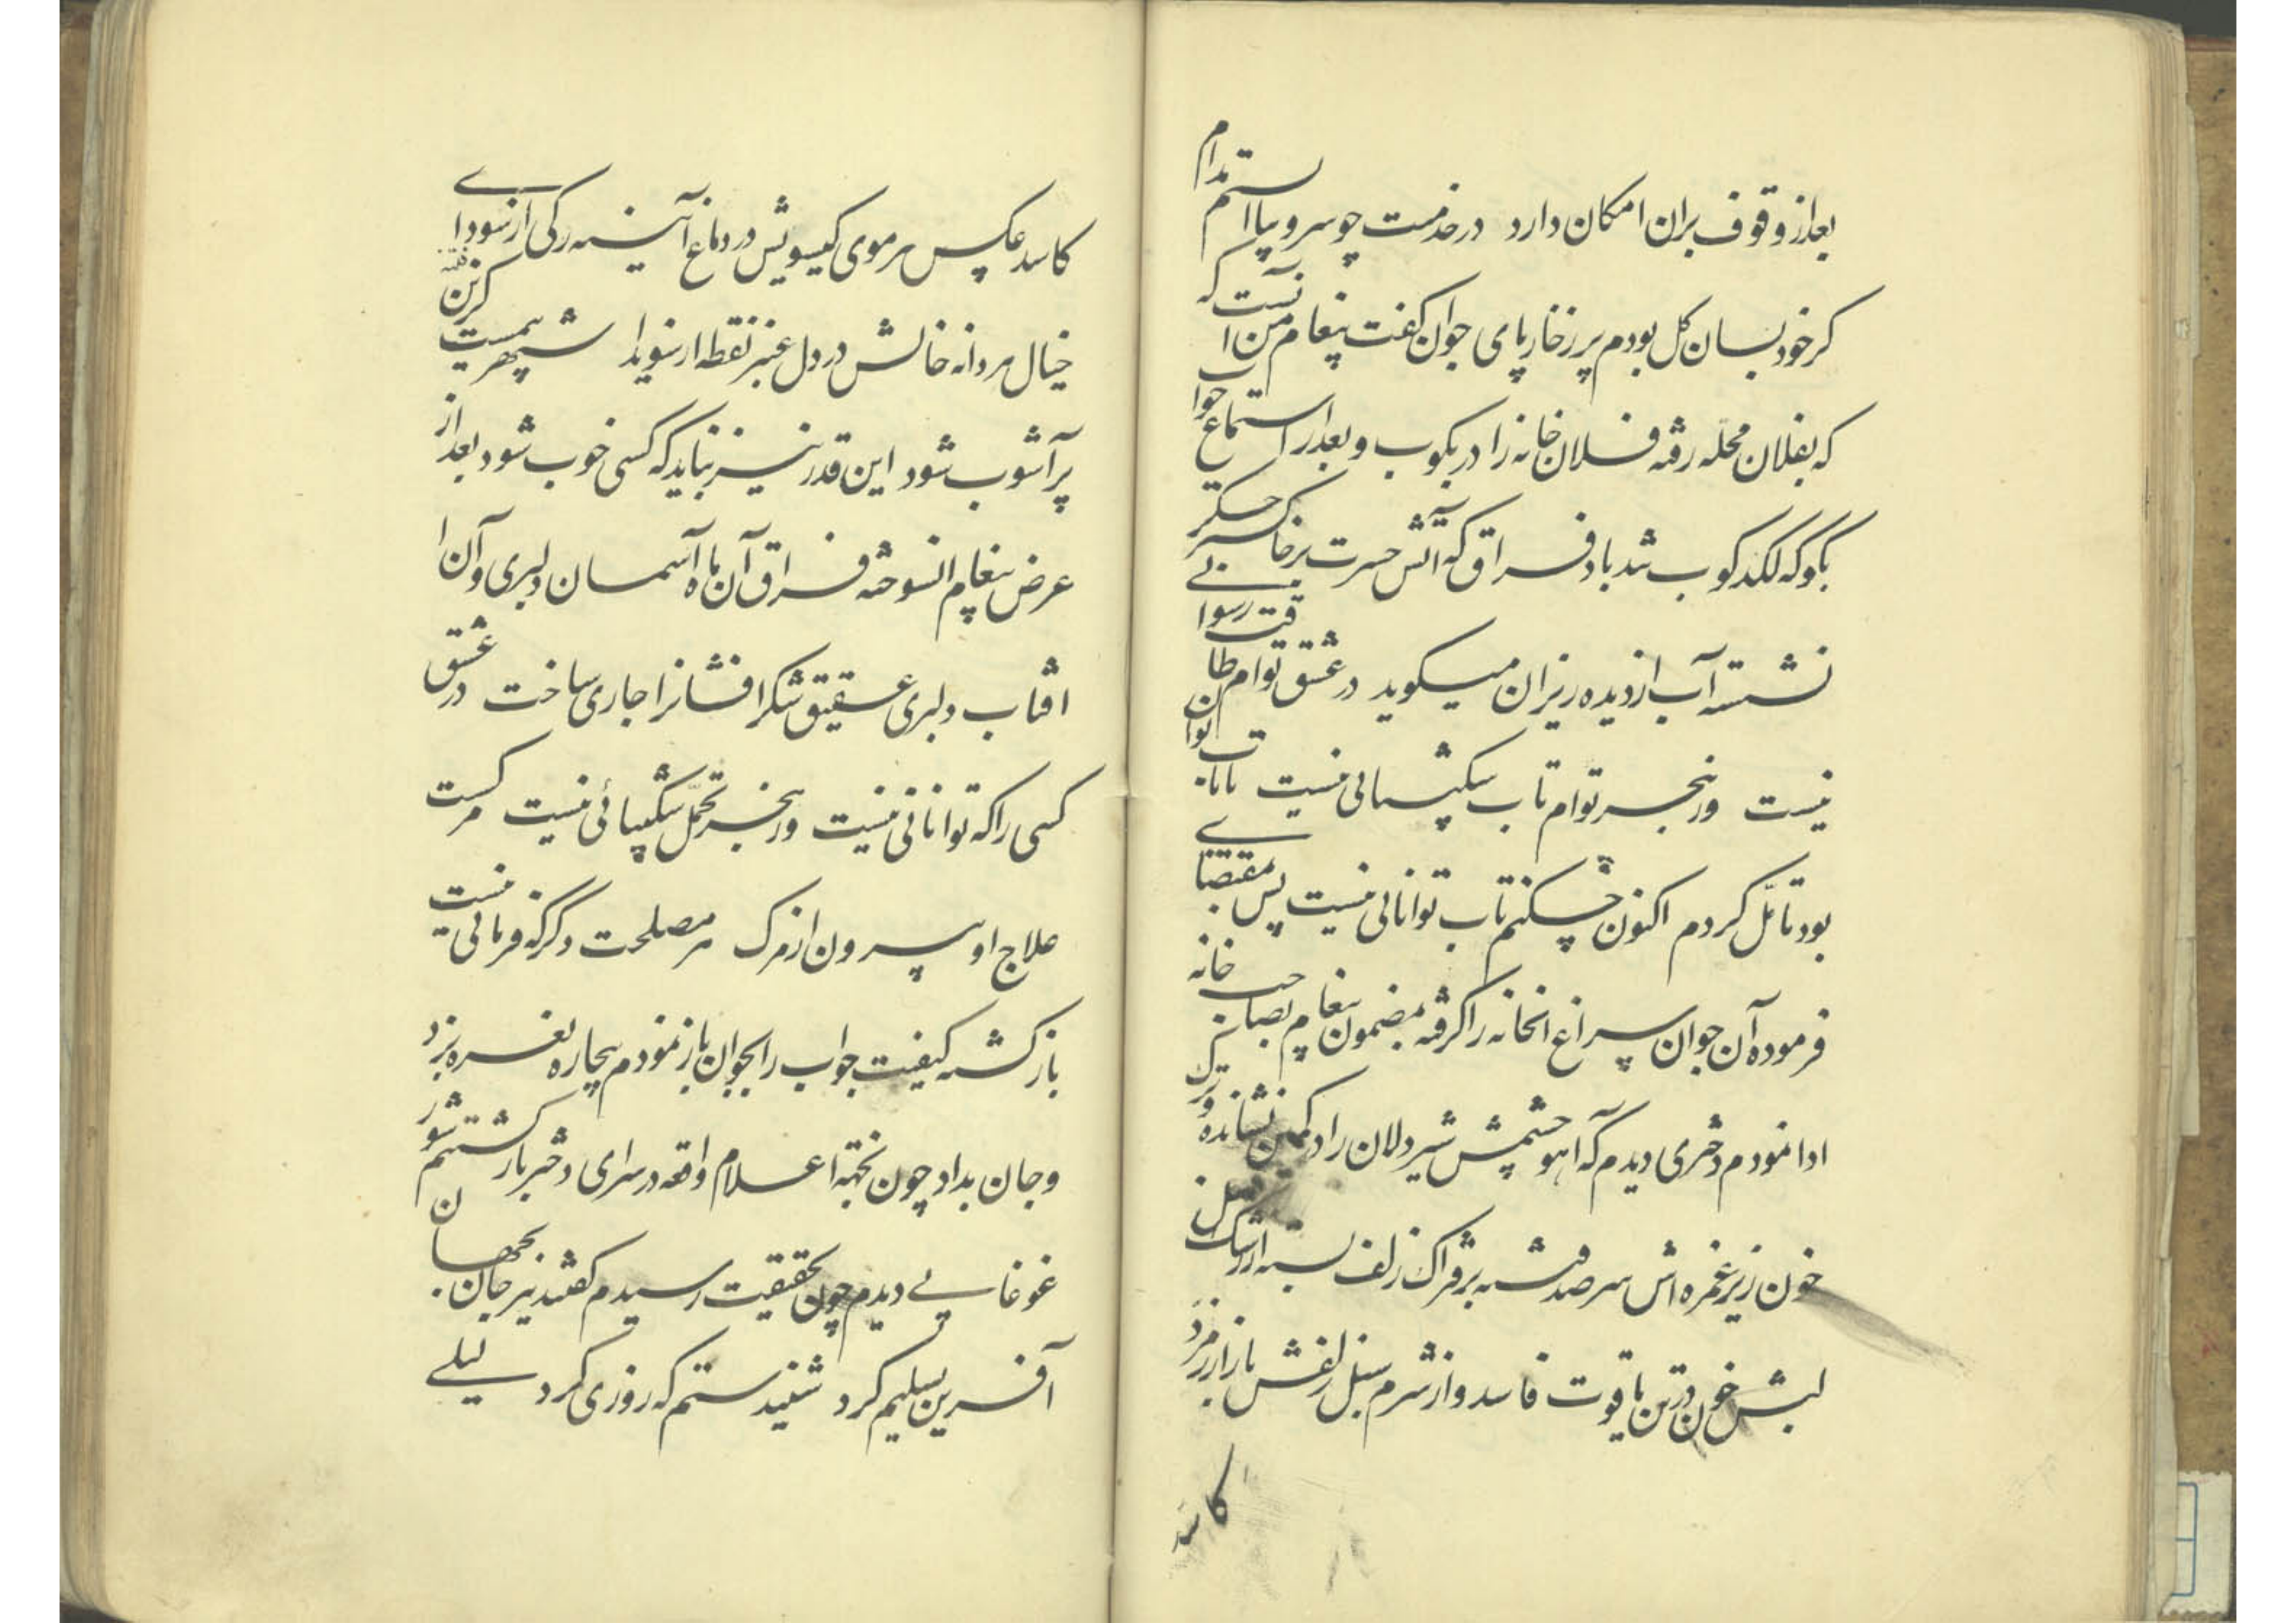 بعد از وقوف بران امکان دارد در خدمت چو سرو پا استم مدام
کر خود بسان کل بودم پر ز خار پای جوان کفت پیغام من آنست که
که بفلان محله رفته فلان خانه را در بکوب و بعد از استماع جواب
بکو که لکد کوب شد باد فراق که آتش حسرت بر خاکستر جکر
نشسته آب از دیده ریزان میکوید در عشق توام طاقت رسوایی
نیست در هجر توام تاب شکیبائی نیست تا تاب توان
بود تامّل کردم اکنون چکنم تاب توانائی نیست پس بمقتضای
فرموده آن جوان سراغ انخانه را کرفته مضمون پیغام بصاحب خانه
ادا نمودم دختری دیدم که آهو چشمش شیر دلان را در کمین نشانده و ترک
خون ریز غمزه اش سر صد فتنه بر فتراک زلف بسته از رشک لعل
لبش خون در تن یاقوت فاسد و از شرم سنبل زلفش بازار زمرد
کاسد
کاسد عکس هر موی کیسویش در دماغ آینه رکی از سودای
خیال هر دانه خالش در دل عنبر نقطه از سویدا شهریست کزین فتنه
پر آشوب شود این قدر نیز نباید که کسی خوب شود بعد از
عرض پیغام انسوخته فراق آن ماه آسمان دلبری و آن
افتاب دلبری عقیق شکر افشانرا جاری ساخت در عشق
کسی را که توانائی نیست در هجر تحمّل شکیبائی نیست مرکست
علاج او برون از مرک هر مصلحت دکر که فرمائی نیست
باز کشته کیفیت جواب را بجوان باز نمودم بیچاره نعره بزد
و جان بداد چون بجهته اعلام واقعه در سرای دختر باز کشتم شور
غوغایی دیدم چون بحقیقت رسیدم کفتند نیز جان بجهان
آفرین تسلیم کرد شنیدستم که روزی کرد لیلی